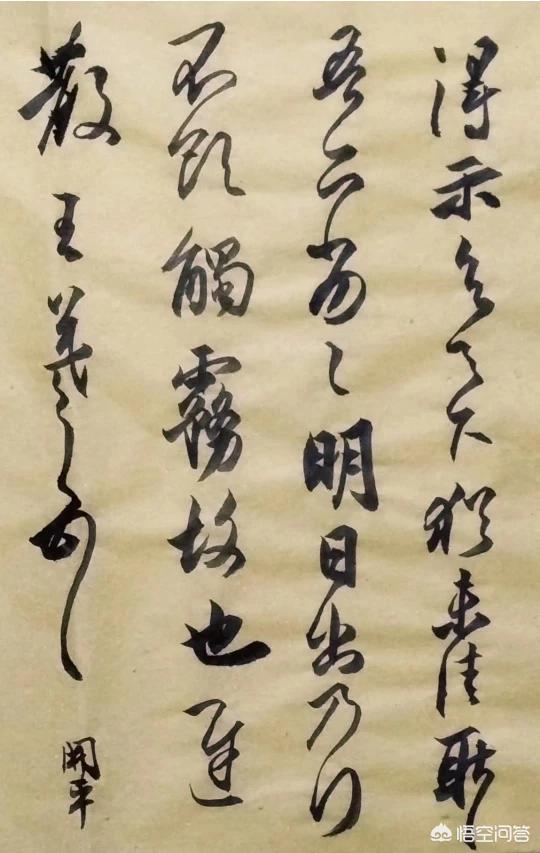 得示知足下猶未佳耿々
吾亦劣々明日出乃行
不欲觸霧故也遲
散王羲之頓首
開平
悟空问答